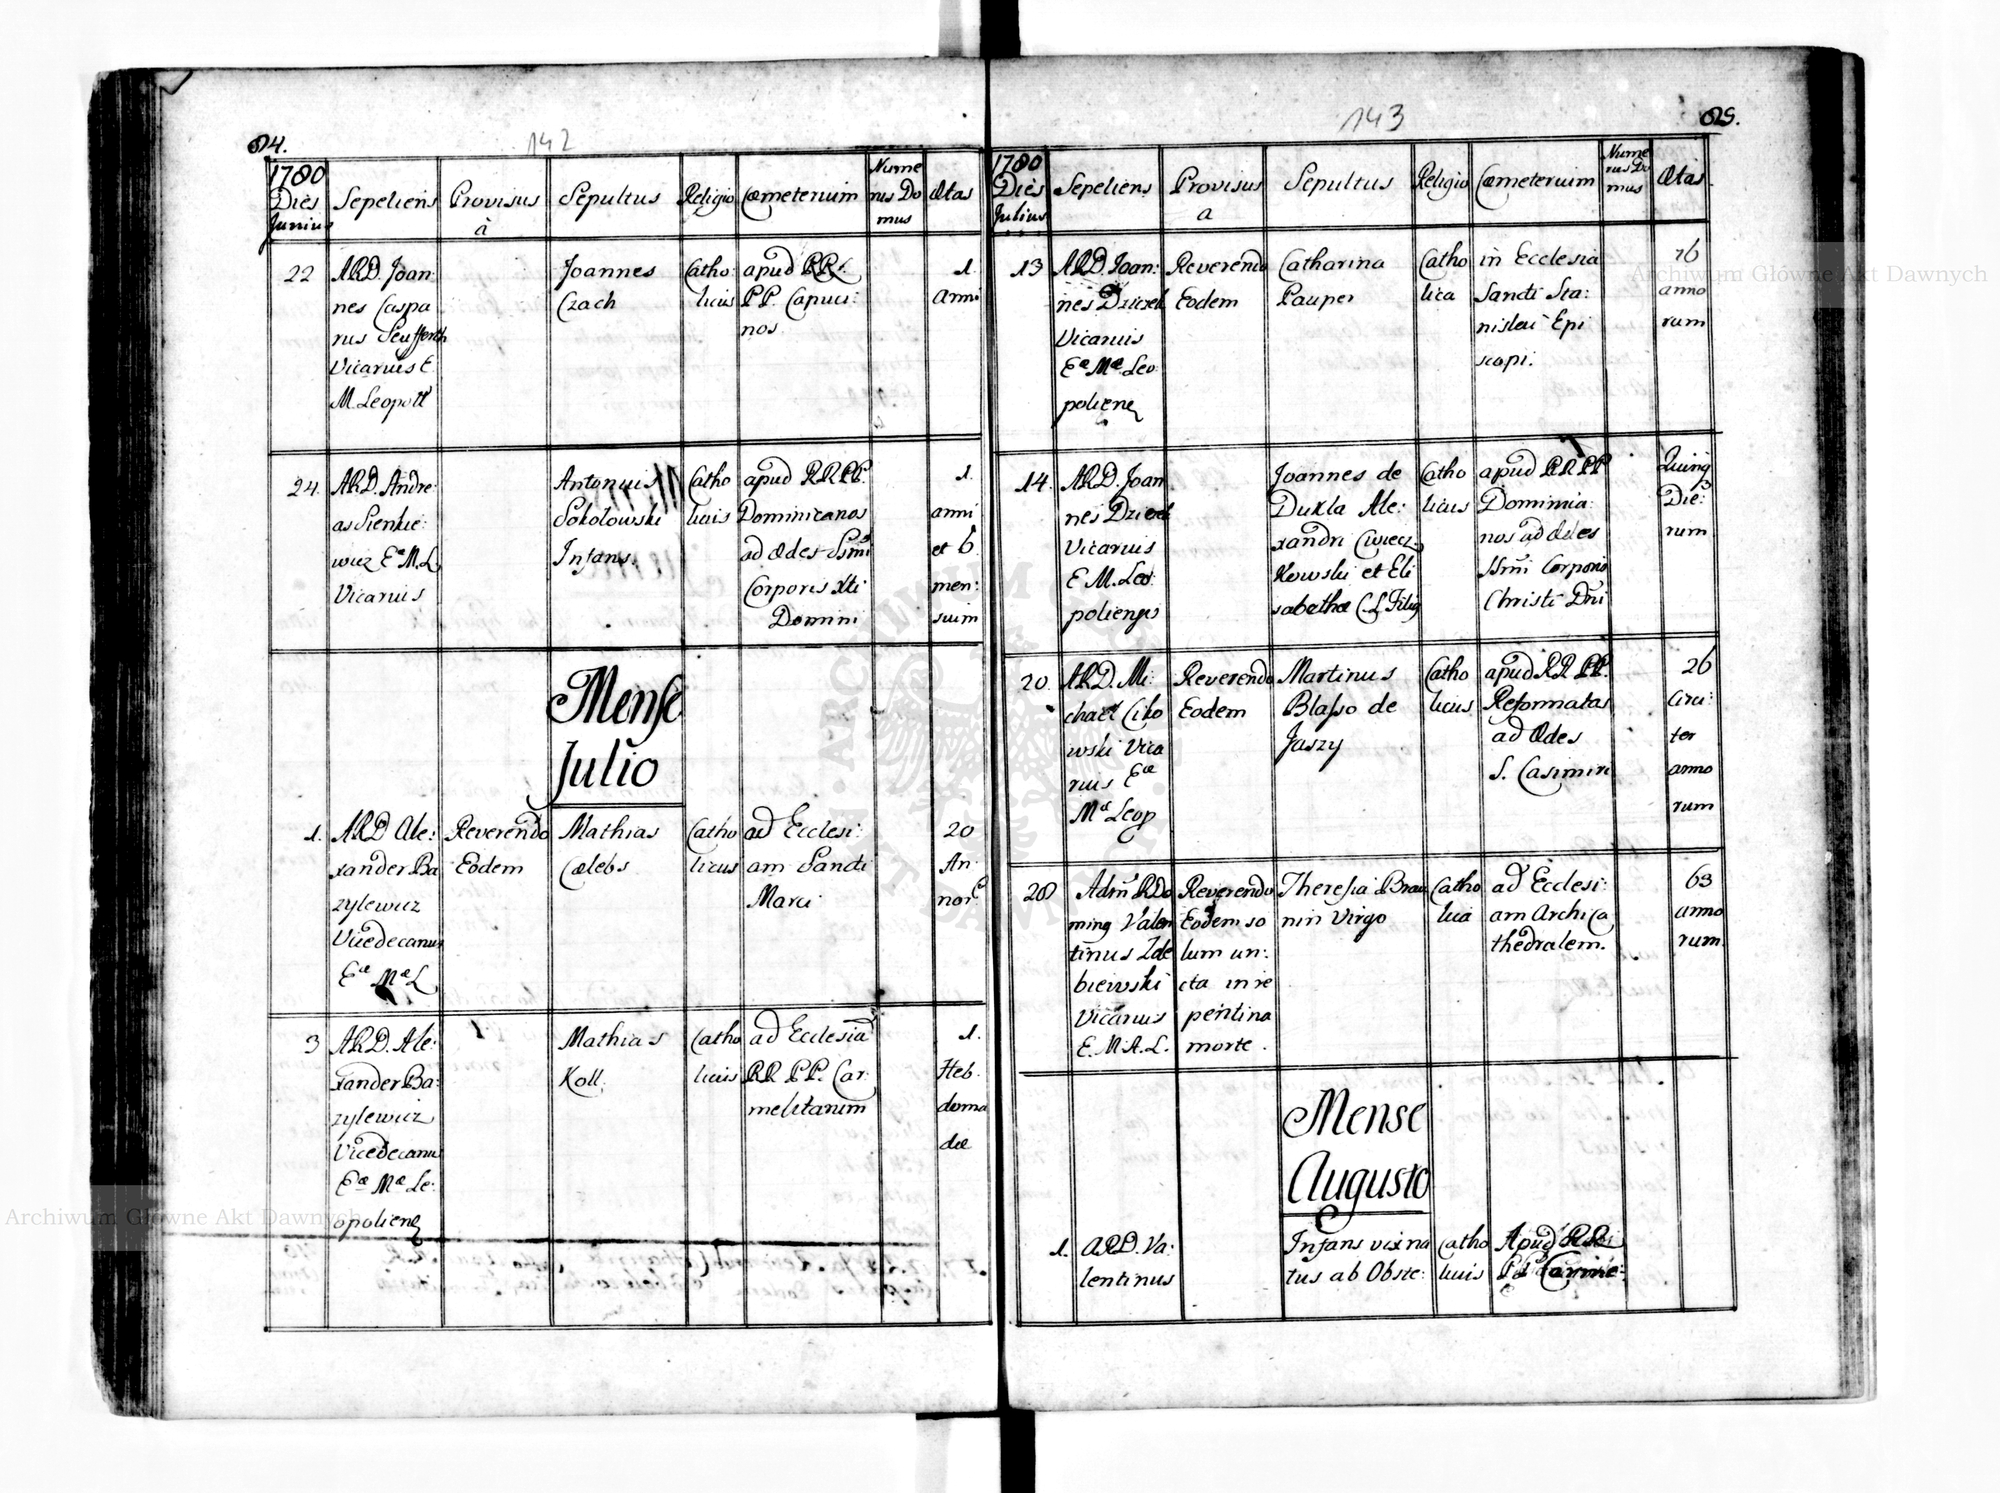 84.
142
1780
Dies
Junius
Sepeliens
Provisus
à
Sepultus
Religio
Cœmeterium
Nume
rus Do
mus
Ætas
22
A.R.D. Joan:
nes Caspa
rus Seufferth
Vicarius E.
M. Leopoll
Joannes
Czach
Catho:
licus
apud RR.
P.P. Capuci:
nos
1.
Anni
24.
A.R.D. Andre:
as Sienkie:
wicz Eæ M. L.
Vicarius
Antonius
Sokołowski
Infans.
Catho
licus
apud R.R.P.P.
Dominicanos
ad Ædes Ssmi
Corporis Xti
Domini
1.
anni
et 6.
men:
sium
Mense
Julio
1.
A.R.D. Ale:
xander Ba
zylewicz
Vicedecanus
Eæ Mæ L.
Reverendo
Eodem
Mathias
Cælebs
Catho
licus
ad Ecclesi:
am Sancti
Marci
20
An:
nor.
3
A.R.D. Ale:
xander Ba:
zylewicz
Vicedecanus
Eæ Mæ Le:
opoliens
Mathias
Koll.
Catho
licus
ad Ecclesia
RR. PP. Car:
melitarum
1.
Heb.
doma
dæ
143
85.
1780
Dies
Julius
Sepeliens
Provisus
a
Sepultus
Religio
Cœmeterium
Nume
rus Do
mus
Ætas.
13
A.R.D. Joan:
nes
Vicarius
Eæ Mæ Leo
poliens
Reverendo
Eodem
Catharina
Pauper
Catho
lica
in Ecclesia
Sancti Sta:
nislai Epi
scopi.
76
anno
rum
14.
A.R.D. Joan
nes
Vicarius
E. M. Leo:
poliensis
Joannes de
Dukla Ale:
xandri
kowski et Eli
sabethæ C. L. Filius
Catho
licus
apud R.R.P.P.
Dominica:
nos ad Ædes
SSmi Corporis
Christi Dni
Quinq
Die:
rum
20.
A.R.D. Mi:
chael Ciko
wski Vica
rius Eæ
Mæ Leop
Reverendo
Eodem
Martinus
Blasso de
Jaszy
Catho
licus
apud R.R. P.P.
Reformatas
ad Ædes
S. Casimiri
26
Circi:
ter
anno
rum
28
Adm R.Do
minus Valen
tinus Zde
biewski
Vicarius
E. M. A. L.
Reverendo
Eodem so
lum un:
cta in re
pentina
morte.
Theresia Brau
nin Virgo
Catho
lica
ad Ecclesi:
am Archica
thedralem.
63
anno
rum.
Mense
Augusto
1.
A.R.D. Va:
lentinus
Infans vix na
tus ab Obste:
Catho
licus
Apud R.R.
P.P. Carme:
ARCHIWUM GŁÓWNE AKT DAWNYCH
Archiwum Główne Akt Dawnych
Archiwum Główne Akt Dawnych